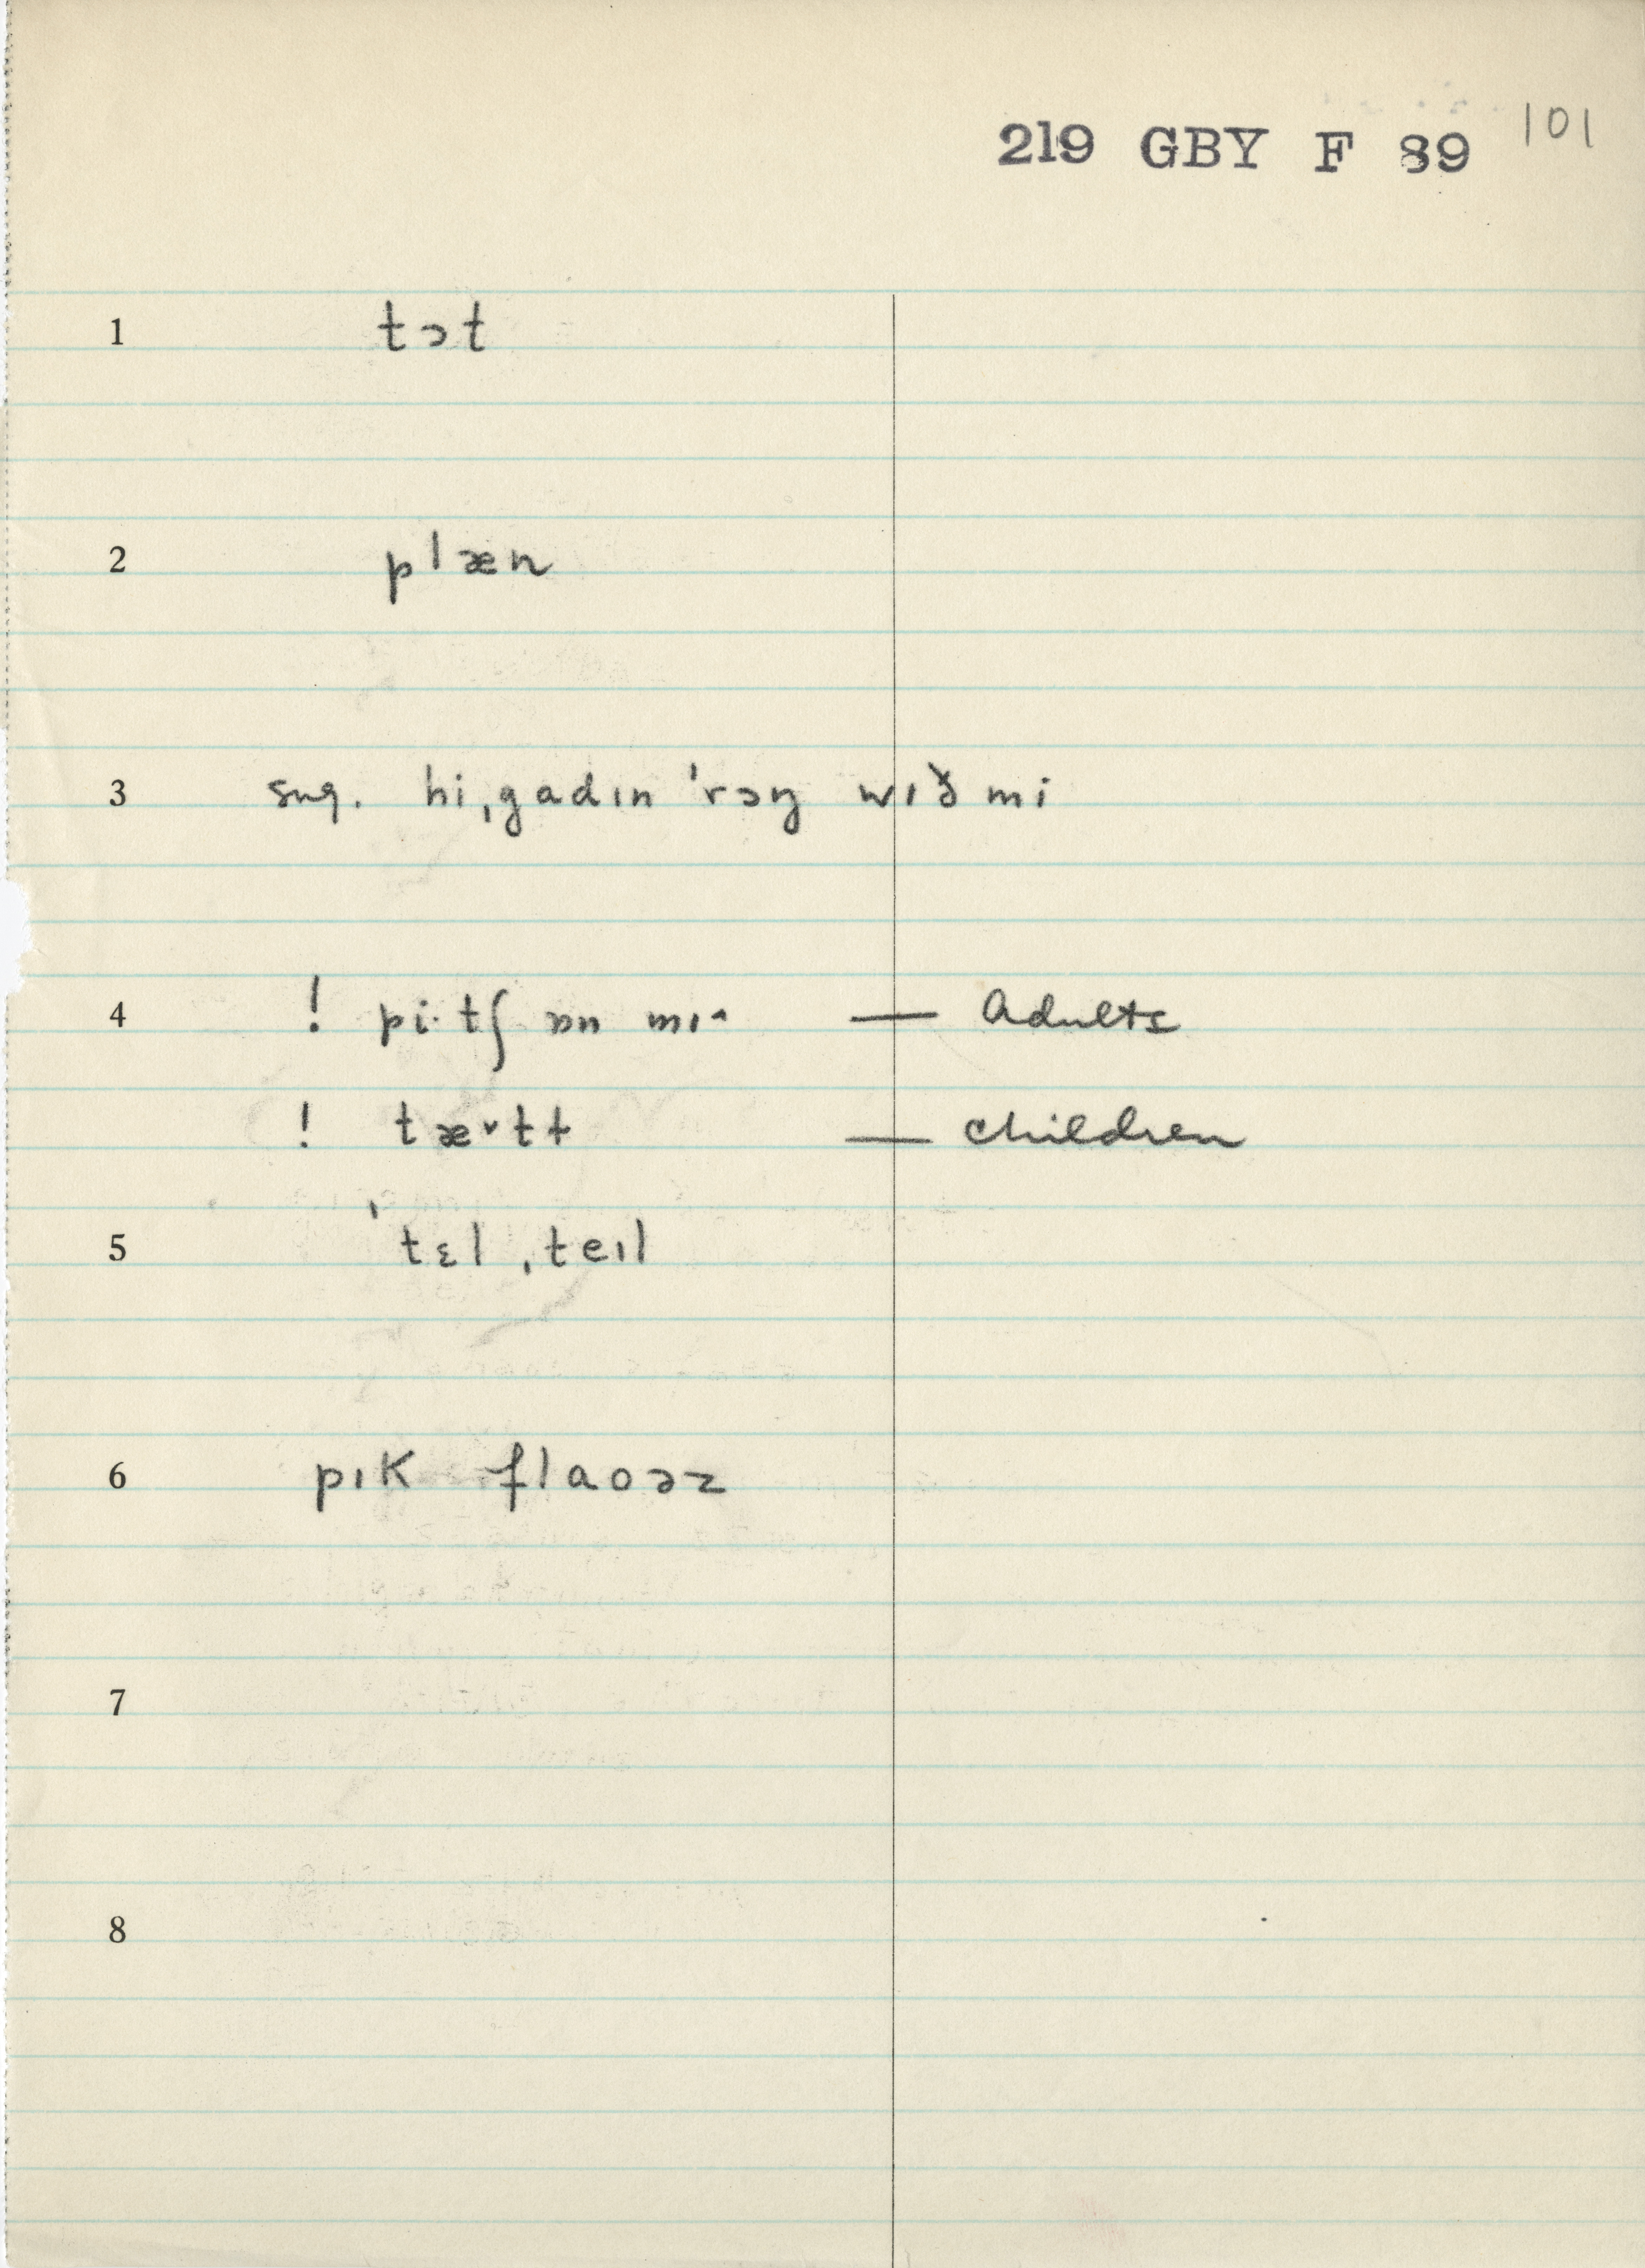 219 GBY F 89 101
1 tɔt
2 plæn
3 sug. hi,gadɪn 'rɔŋ wɪð mi
4 ! pi·tʃ ɒn mɪ^ — Adults
! tæ˅tt — children
5 'tɛl ,teɪl
6 pɪk flaoəz
7
8